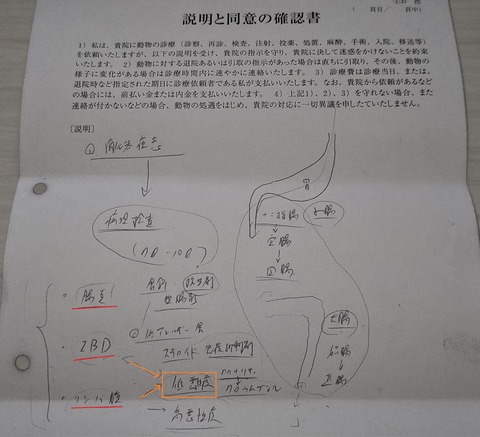 説明と同意の確認書
( 頁目/ 頁中)
1) 私は、貴院に動物の診療(診察、再診、検査、注射、投薬、処置、麻酔、手術、入院、移送等)
を依頼いたしますが、以下の説明を受け、貴院の指示を守り、貴院に決して迷惑をかけないことを約束
いたします。 2) 動物に対する退院あるいは引取の指示があった場合は直ちに引取り、その後、動物の
様子に変化がある場合は診療時間内に速やかに連絡いたします。 3) 診療費は診療当日、または
退院時など指定された期日に診療依頼者である私が支払いいたします。なお、貴院から依頼があるなど
の場合には、前払い金または内金を支払いいたします。 4) 上記1)、2)、3) を守れない場合、また
連絡が付かないなどの場合、動物の処遇をはじめ、貴院の対応に一切異議を申したていたしません。
[説明]
病理検査
(7日~10日)
胃
十二指腸
小腸
空腸
回腸
大腸
結腸
直腸
腸炎
IBD
ステロイド 免疫抑制剤
リンパ腫
低悪性度
高悪性度